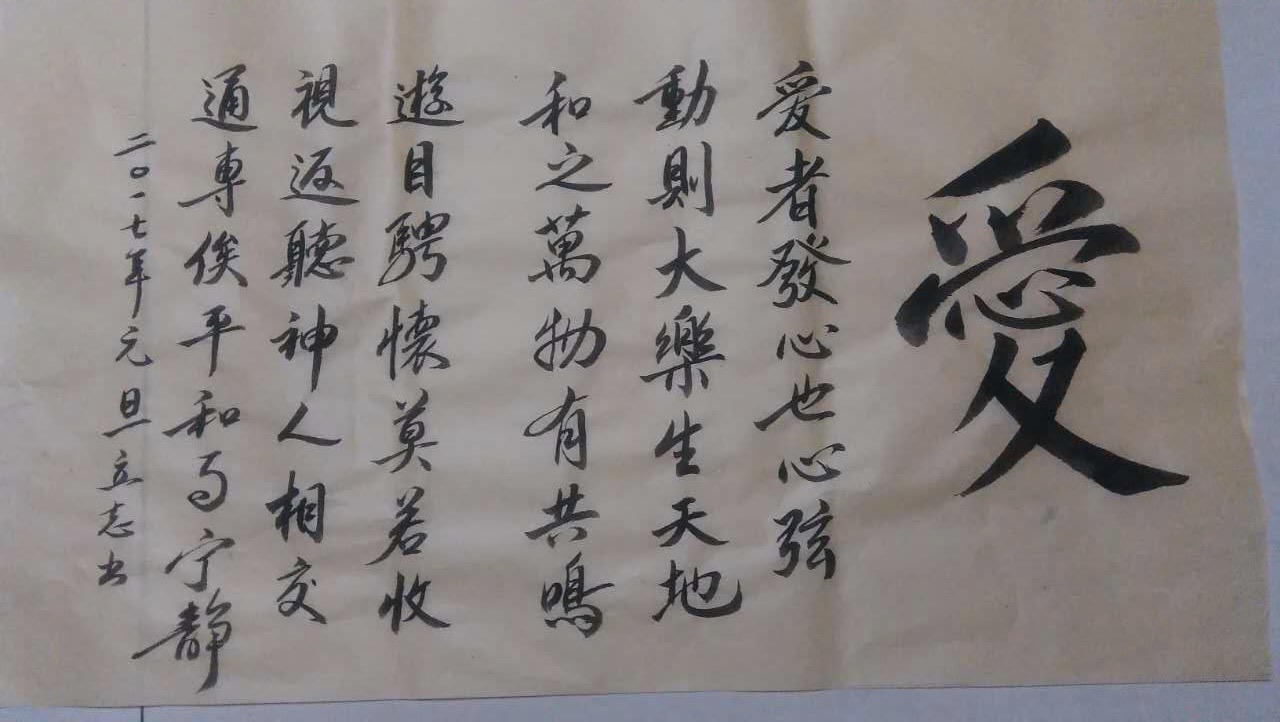 愛
愛者發心也心弦
動則大樂生天地
和之萬物有共鳴
遊目騁懷莫若收
視返聽神人相交
通專俟平和与宁靜
二〇一七年元旦立志书